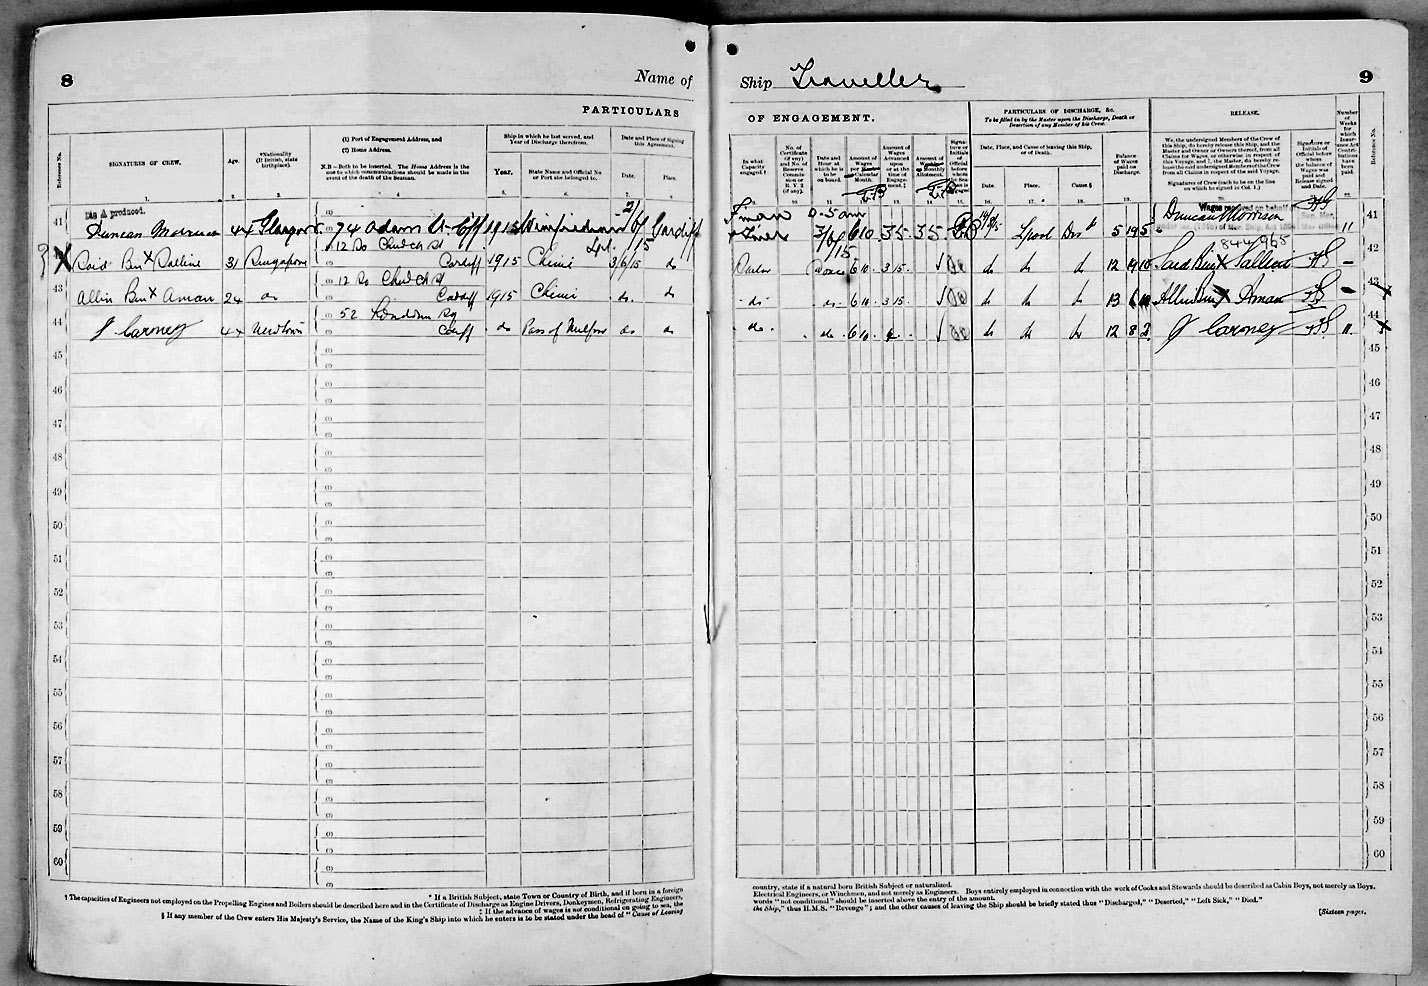 8
Name of
Ship Traveller
9
PARTICULARS
OF ENGAGEMENT.
PARTICULARS OF DISCHARGE, &c.
To be filled in by the Master upon the Discharge, Death or Desertion of any Member of his Crew.
RELEASE.
Reference No.
SIGNATURES OF CREW.
Age.
*Nationality
(If British, state
birthplace).
(1) Port of Engagement Address, and
(2) Home Address.
N.B.—Both to be inserted. The Home Address is the
one to which communications should be made in the
event of the death of the Seaman.
Ship in which he last served, and
Year of Discharge therefrom.
Year.
State Name and Official No.
or Port she belonged to.
Date and Place of Signing
this Agreement.
Date.
Place.
In what
Capacity
engaged.†
No. of
Certificate
(if any)
and No. of
Reserve
Commission
or
R.V.2
(if any).
Date and
Hour at
which he is
to be
on board.
Amount of
Wages
per
Calendar
Month.
Amount of
Wages
Advanced
upon
or at the
time of
Engagement.‡
Amount of
Monthly
Allotment.
Date, Place, and Cause of leaving this Ship,
or of Death.
Date.
Place.
Cause.§
Balance
of Wages
paid on
Discharge.
We, the undersigned Members of the Crew of
this Ship, do hereby release this Ship, and the
Master and Owner or Owners thereof, from all
Claims for Wages or otherwise in respect of
this Voyage, and I, the Master, do hereby release
the said undersigned Members of the Crew
from all Claims in respect of the said Voyage.
Signatures of Crew (each to be on the line
on which he signed in Col. 1.)
Signature or
Initials of
Official before
whom
the balance of
Wages was
paid and
Release signed
and Date.
Number
of
Weeks
for
which
Contributions
have
been
paid.
Reference No.
41 Dis A produced. Duncan Morrison 44 Glasgow 74 Adam St Cff 1915 Winifredian Lpl. 2/6/15 Cardiff Fman 5 am 3/6/15 6 10 3 5 3 5 Lpool Dis 5 19 5 Wages received on behalf Duncan Morrison 11 41
42 Said Bin X Salline 31 Singapore 12 So Church St Cardiff 1915 Chemie 3/6/15 do 6 10 3 15 do do do 12 19 10 844,965 Said Bin X Salline 42
43 Allin Bin X Aman 24 do 12 So Church St Cardiff 1915 Chemie do. do do 6 10 3 15 do do do 13 6 10 Allin Bin X Aman 43
44 J Carney 44 Newtown 52 London Sq Cdiff do Pass of Melfort do do do. do 6 10 do do do 12 8 2 J Carney 11 44
45 45
46 46
47 47
48 48
49 49
50 50
51 51
52 52
53 53
54 54
55 55
56 56
57 57
58 58
59 59
60 60
* If a British Subject, state Town or Country of Birth, and if born in a foreign country, state if a natural born British Subject or naturalized.
† The capacities of Engineers not employed on the Propelling Engines and Boilers should be described here and in the Certificate of Discharge as Engine Drivers, Donkeymen, Refrigerating Engineers, Electrical Engineers, or Winchmen, and not merely as Engineers. Boys entirely employed in connection with the work of Cooks and Stewards should be described as Cabin Boys, not merely as Boys.
‡ If the advance of wages is not conditional on going to sea, the words "not conditional" should be inserted above the entry of the amount.
§ If any member of the Crew enters His Majesty's Service, the Name of the King's Ship into which he enters is to be stated under the head of "Cause of Leaving the Ship," thus H.M.S. "Revenge"; and the other causes of leaving the Ship should be briefly stated thus "Discharged," "Deserted," "Left Sick," "Died."
[Sixteen pages.